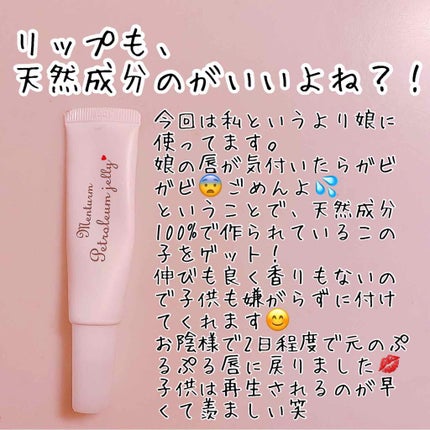 リップも、
天然成分のがいいよね?!
今回は私というより娘に
使ってます。
娘の唇が気付いたらガビ
ガビ😨ごめんよ💦
ということで、天然成分
100%で作られているこの
子をゲット!
伸びも良く香りもないの
で子供も嫌がらずに付け
てくれます😊
お陰様で2日程度で元のぷ
るぷる唇に戻りました💋
子供は再生されるのが早
くて羨ましい笑
Menturm
Petroleum jelly